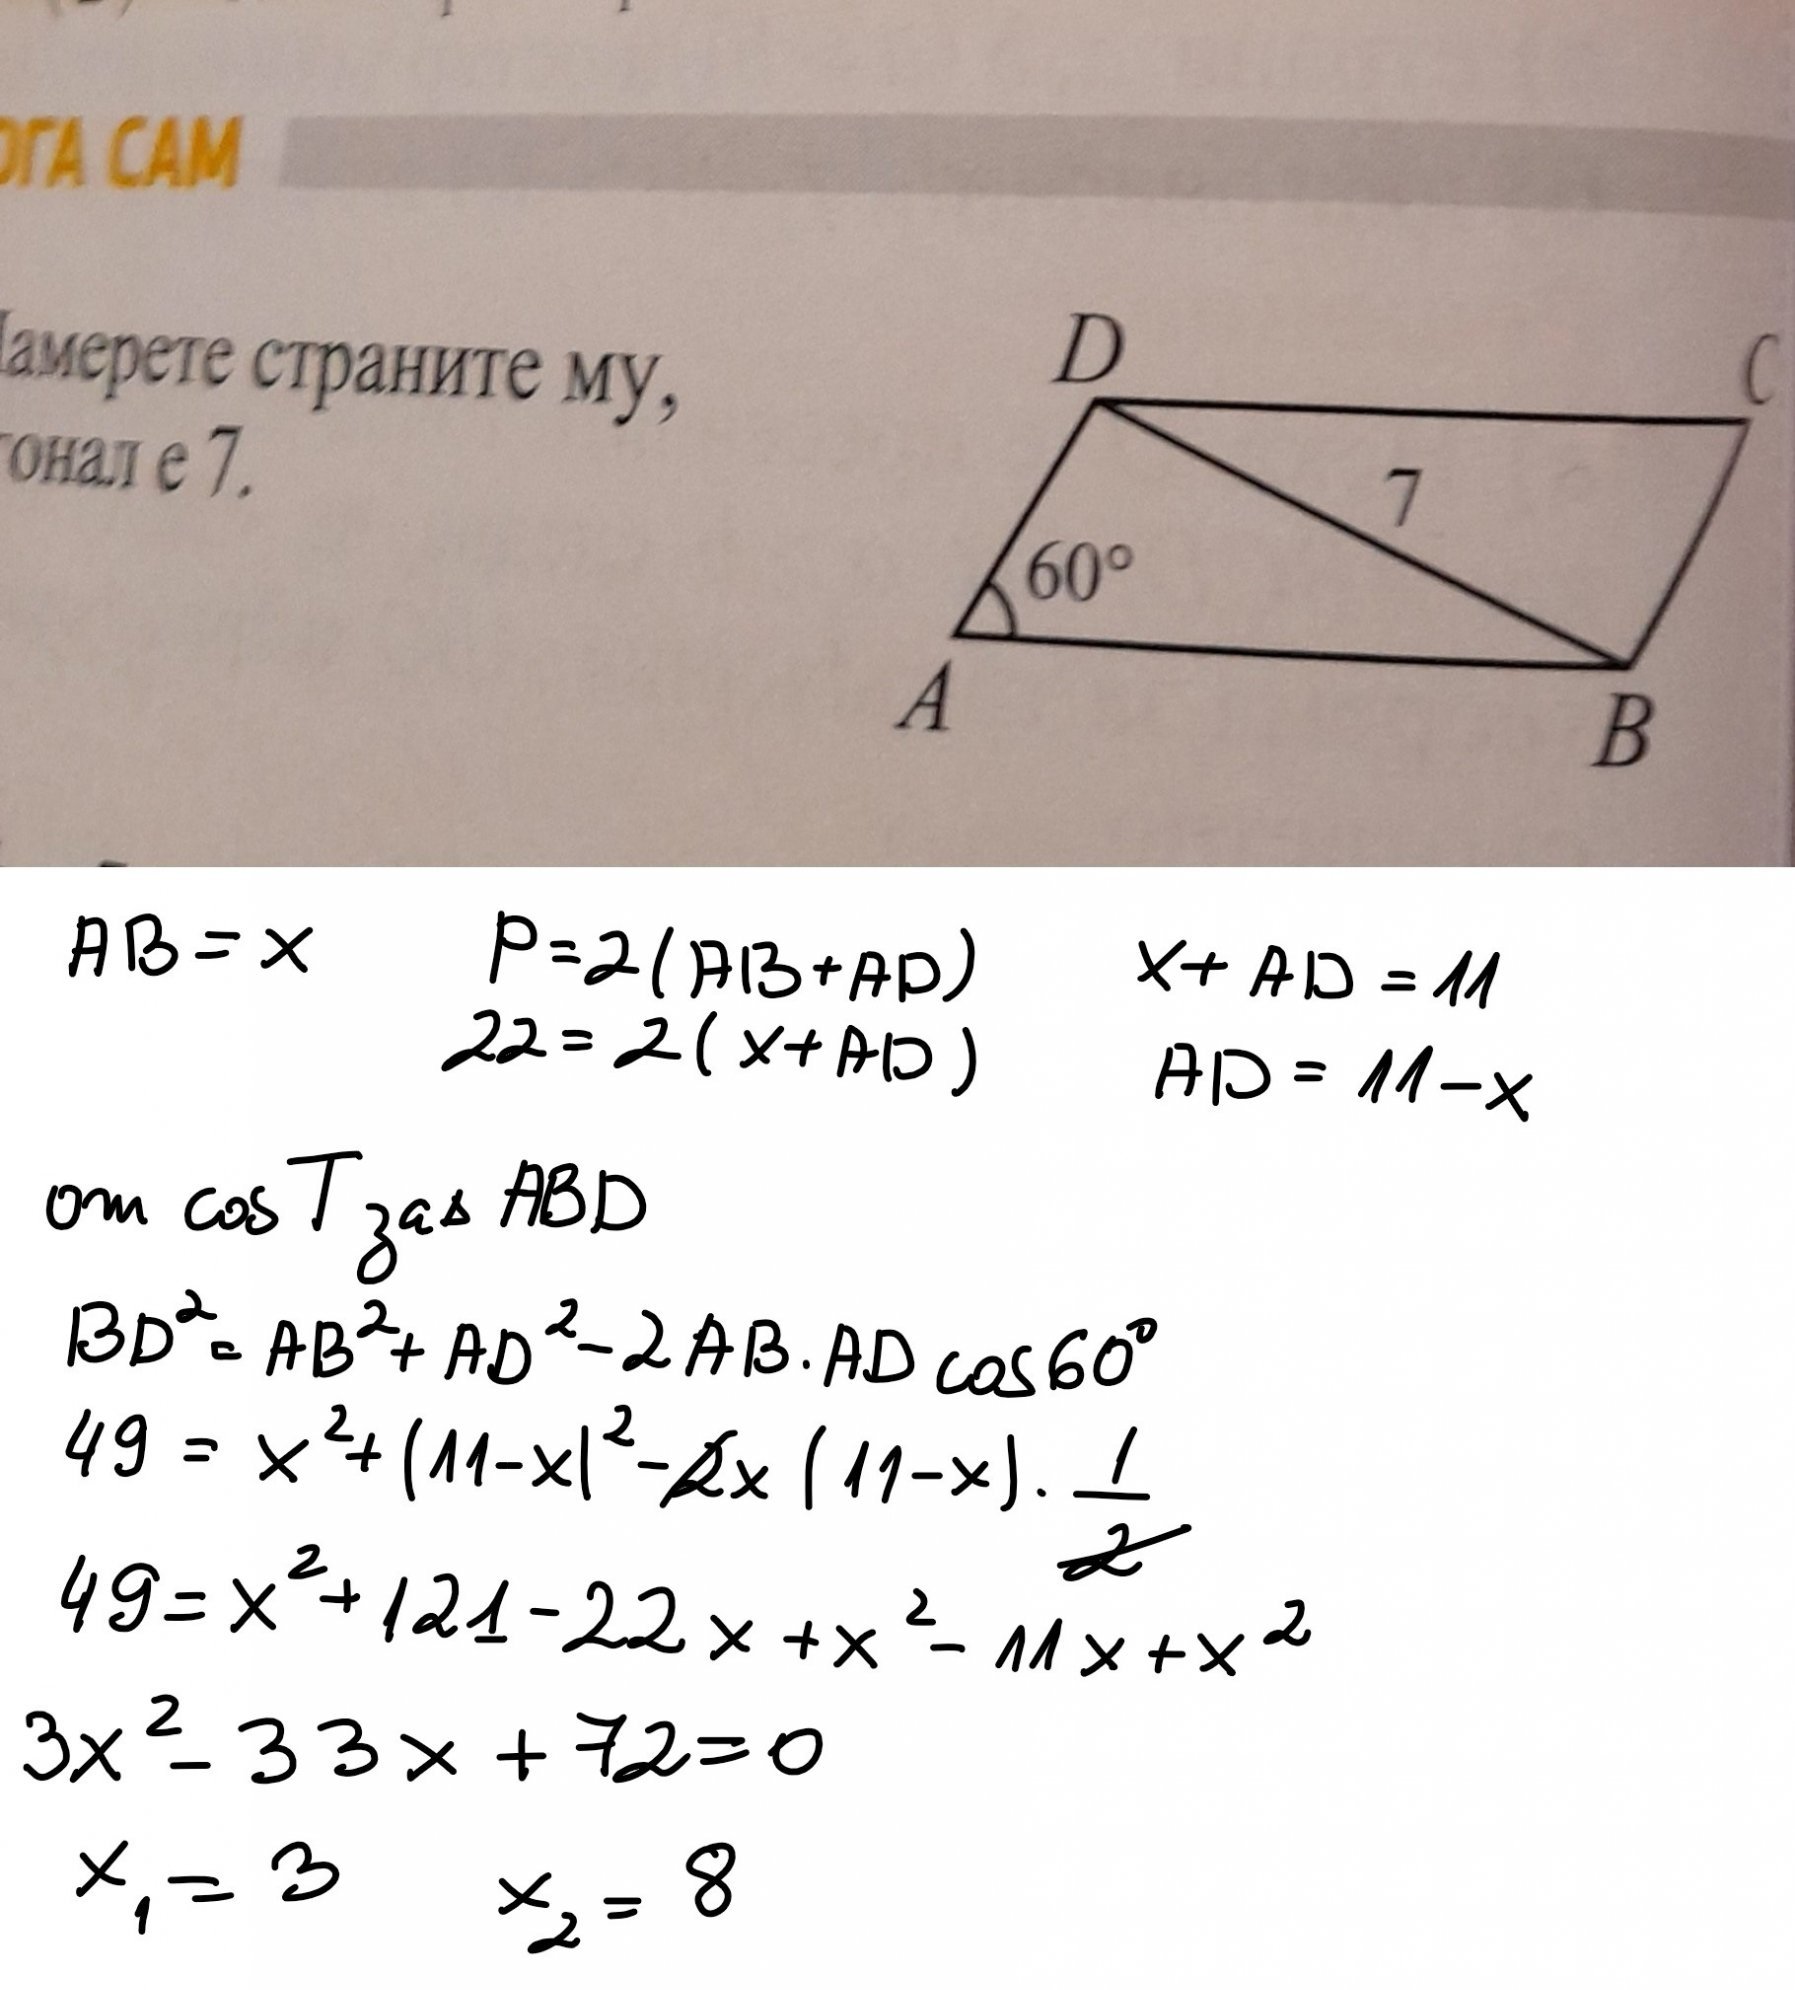 САМ
страните му,
е 7.
D
C
7
60°
A
B
AB = x P = 2(AB+AD) x + AD = 11
22 = 2(x+AD) AD = 11 - x
от cos T за △ ABD
BD² = AB² + AD² - 2AB.AD cos60°
49 = x² + (11-x)² - 2x(11-x). 1/2
49 = x² + 121 - 22x + x² - 11x + x²
3x² - 33x + 72 = 0
x₁ = 3 x₂ = 8